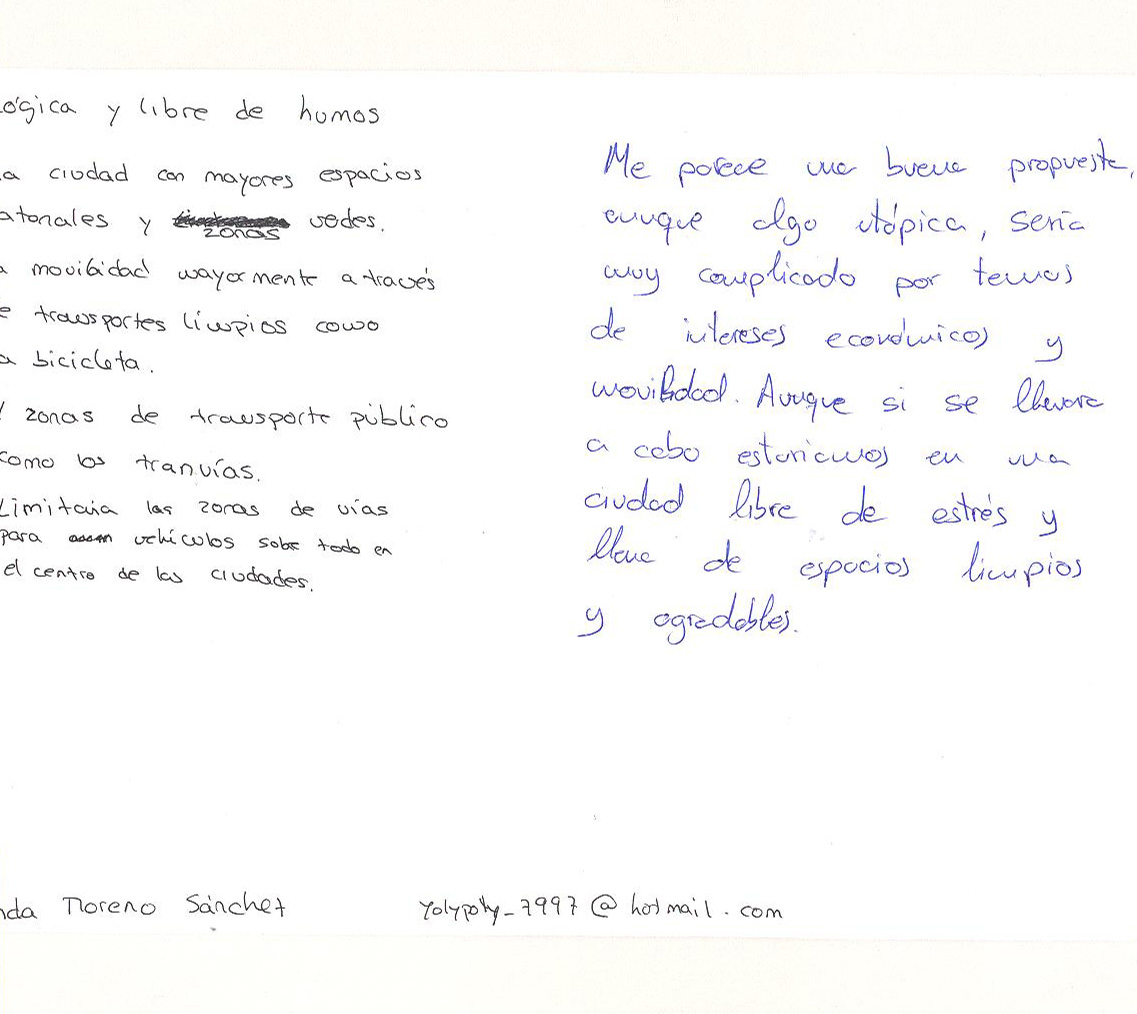 ógica y libre de humos
a ciudad con mayores espacios
atonales y zonas vedes.
a movilidad mayormente a través
e transportes limpios como
a bicicleta.
zonas de transporte público
como los tranvías.
Limitaria las zonas de vías
para vehículos sobre todo en
el centro de las ciudades.
Me parece una buena propuesta,
aunque algo utópica, sería
muy complicado por temas
de intereses económicos y
movilidad. Aunque si se llevara
a cabo estaríamos en una
ciudad libre de estrés y
llena de espacios limpios
y agradables.
nda Moreno Sánchez
@hotmail.com